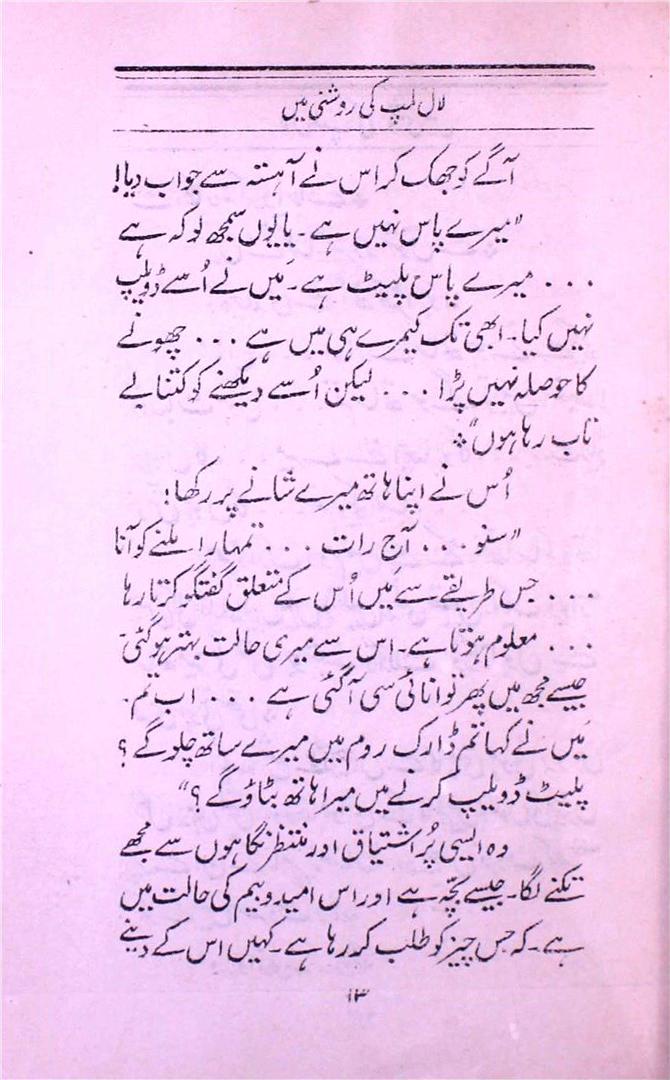 لال لمپ کی روشنی میں
آگے کو جھک کر اس نے آہستہ سے جواب دیا!
"میرے پاس نہیں ہے۔ یا یوں سمجھ لو کہ ہے
... میرے پاس پلیٹ ہے۔ مَیں نے اُسے ڈویلپ
نہیں کیا۔ ابھی تک کیمرے ہی میں ہے ... چھونے
کا حوصلہ نہیں پڑا ... لیکن اُسے دیکھنے کو کتنا بے
تاب رہا ہوں"۔
اُس نے اپنا ہاتھ میرے شانے پر رکھا:
"سنو ... آج رات ... تمہارا ملنے کو آنا
... جس طریقے سے مَیں اُس کے متعلق گفتگو کرتا رہا
... معلوم ہوتا ہے۔ اس سے میری حالت بہتر ہو گئی۔
جیسے مجھ میں پھر توانائی سی آ گئی ہے ... اب تم۔
مَیں نے کہا تم ڈارک روم میں میرے ساتھ چلو گے؟
پلیٹ ڈویلپ کرنے میں میرا ہاتھ بٹاؤ گے؟"
وہ ایسی پُر اشتیاق اور منتظر نگاہوں سے مجھے
تکنے لگا۔ جیسے بچّہ ہے اور اس امید و بیم کی حالت میں
ہے۔ کہ جس چیز کو طلب کر رہا ہے۔ کہیں اس کے دینے
۱۳